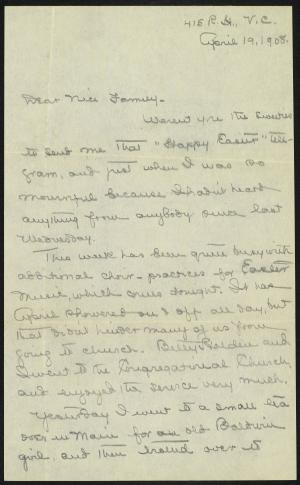 415 R. H., V. C.
April 19, 1908.
Dear Nice Family-
Weren't you the sweetest
to send me that "Happy Easter" tele-
gram, and just when I was so
mournful because I hadn't heard
anything from anybody since last
Wednesday.
This week has been quite busy with
additional choir-practices for Easter
music, which comes tonight. It has
April showered on & off all day, but
that didn't hinder many of us from
going to church. Betty Balden and
I went to the Congregational Church,
and enjoyed the service very much.
Yesterday I went to a small tea
over in Main for an old Baldwin
girl, and then over to